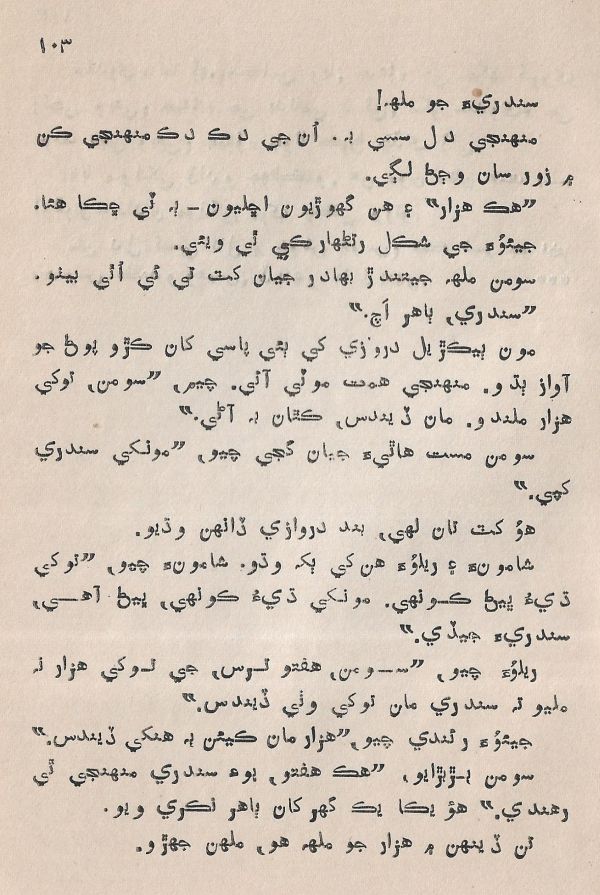 ۱۰۳
سندريءَ جو ملهہ!
منهنجي دل سسي بہ. اُن جي دڪ دڪ منهنجي ڪن
۾ زور سان وڄڻ لڳي.
”هڪ هزار“ ۽ هن گهوڙيون اڇليون- بہ ٽي ڇڪا هئا.
جيئوءَ جي شڪل رئڻهارڪي ٿي ويئي.
سومن ملهہ جيتندڙ بهادر جيان کٽ تي ٿي اُٿي بيٺو.
”سندري، ٻاهر اَچ.“
مون ٻيڪڙيل دروازي کي ٻئي پاسي کان ڪڙو پوڻ جو
آواز ٻڌو. منهنجي همت موٽي آئي. چيم، ”سومن، توکي
هزار ملندو. مان ڏيندس، ڪٿان بہ آڻي.“
سومن مست هاٿيءَ جيان گجي چيو، ”مونکي سندري
کپي.“
هوُ کٽ تان لهي، بند دروازي ڏانهن وڌيو.
شامونءَ ۽ ريلوُءَ هن کي ٻکہ وڌو. شامونءَ چيو، ”توکي
ڌيءُ ڀيڻ ڪونهي. مونکي ڌيءُ ڪونهي، ڀيڻ آهي،
سندريءَ جيڏي.“
ريلوُءَ چيو، ”سومن، هفتو ترس، جي توکي هزار نہ
مليو تہ سندري مان توکي وٺي ڏيندس.“
جيئوُءَ رئندي چيو،”هزار مان ڪيئن بہ هنکي ڏيندس.“
سومن بڙبڙايو، ”هڪ هفتو، پوءِ سندري منهنجي ٿي
رهندي.“ هوُ يڪا يڪ گهر کان ٻاهر نڪري ويو.
ٽن ڏينهن ۾ هزار جو ملهہ هو، ملهن جهڙو.